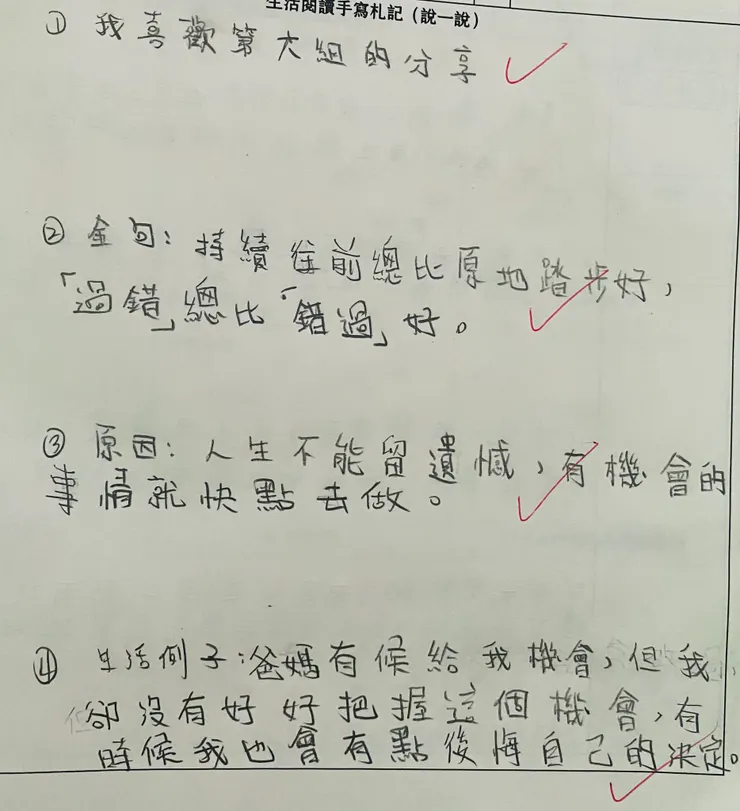 生活閱讀手寫札記（說一說）
① 我喜歡第六組的分享
② 金句：持續往前總比原地踏步好，
「過錯」總比「錯過」好。
③ 原因：人生不能留遺憾，有機會的
事情就快點去做。
④ 生活例子：爸媽有候給我機會，但我
卻沒有好好把握這個機會，有
時候我也會有點後悔自己的決定。